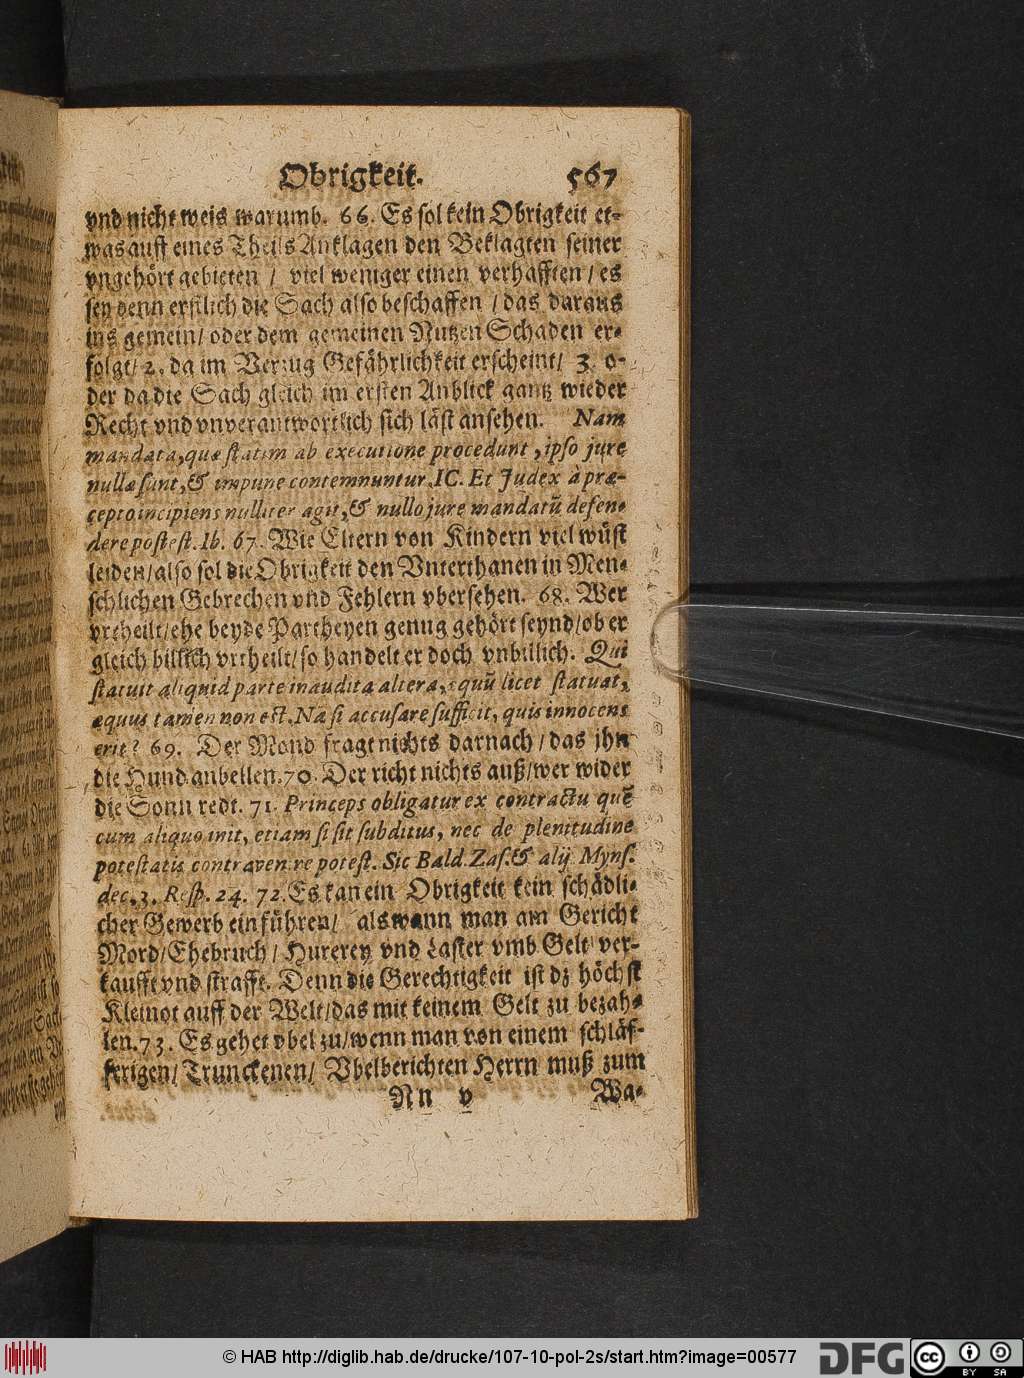 Obrigkeit. 567
vnd nicht weis warumb. 66. Es sol kein Obrigkeit et-
was auff eines Theils Anklagen den Beklagten seiner
vngehört gebieten / viel weniger einen verhafften / es
sey denn erstlich die Sach also beschaffen / das daraus
ins gemein / oder dem gemeinen Nutzen Schaden er-
folgt / 2. da im Verzug Gefährlichkeit erscheint / 3. o-
der da die Sach gleich im ersten Anblick gantz wieder
Recht vnd vnverantwortlich sich läst ansehen. Nam
mandata, quæ statim ab executione procedunt, ipso jure
nulla sunt, & impune contemnuntur, IC. Et Judex à præ-
cepto incipiens nulliter agit, & nullo jure mandatū defen-
dere postest. Ib. 67. Wie Eltern von Kindern viel wüst
leiden / also sol die Obrigkeit den Vnterthanen in Men-
schlichen Gebrechen vnd Fehlern vbersehen. 68. Wer
vrtheilt / ehe beyde Partheyen genug gehört seynd / ob er
gleich billich vrtheilt / so handelt er doch vnbillich. Qui
statuit aliquid parte inaudita altera, equū licet statuat,
æquus tamen non est. Na si accusare sufficit, quis innocens
erit? 69. Der Mond fragt nichts darnach / das jhn
die Hund anbellen. 70. Der richt nichts auß / wer wider
die Sonn redt. 71. Princeps obligatur ex contractu quē
cum aliquo init, etiam si sit subditus, nec de plenitudine
potestatis contravenire potest. Sic Bald. Zas. & alij Myns.
dec. 3. Resp. 24. 72. Es kan ein Obrigkeit kein schädli-
cher Gewerb einführen / als wann man am Gericht
Mord / Ehebruch / Hurerey vnd Laster vmb Gelt ver-
kaufft vnd strafft. Denn die Gerechtigkeit ist dz höchst
Kleinot auff der Welt / das mit keinem Gelt zu bezah-
len. 73. Es gehet vbel zu / wenn man von einem schläf-
ferigen / Trunckenen / Vbelberichten Herrn muß zum
Nn v Wa-
© HAB http://diglib.hab.de/drucke/107-10-pol-2s/start.htm?image=00577
DFG
cc BY SA